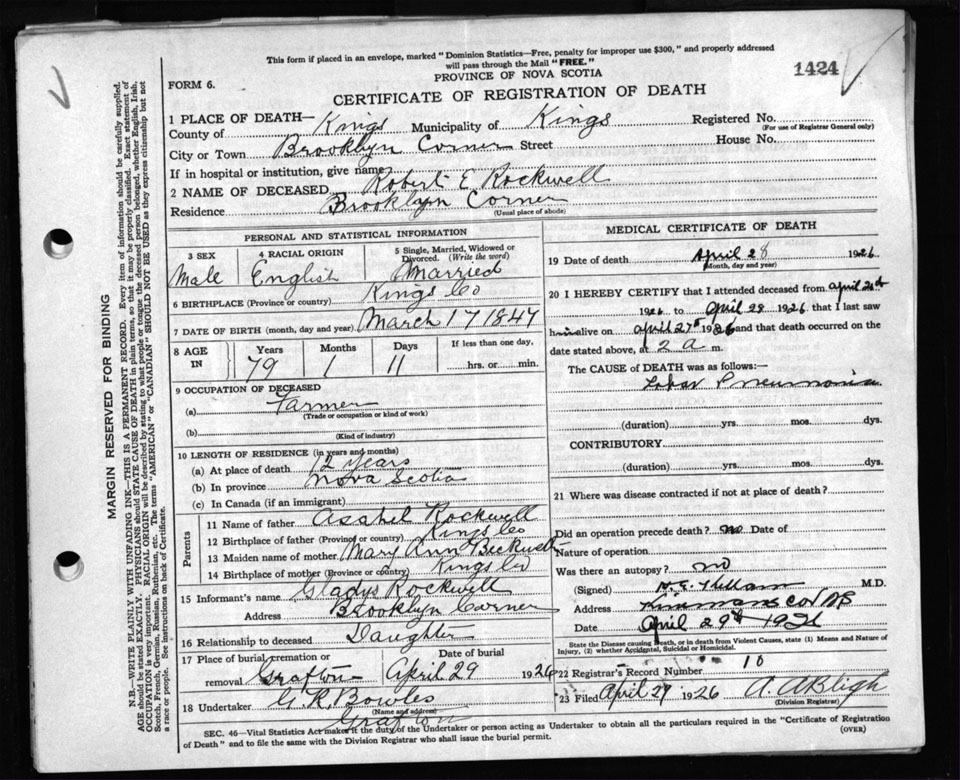 This form if placed in an envelope, marked "Dominion Statistics—Free, penalty for improper use $300," and properly addressed
will pass through the Mail "FREE."
PROVINCE OF NOVA SCOTIA
1424
FORM 6.
CERTIFICATE OF REGISTRATION OF DEATH
1 PLACE OF DEATH—
County of Kings Municipality of Kings Registered No.
(For use of Registrar General only)
City or Town Brooklyn Corner Street House No.
If in hospital or institution, give name
2 NAME OF DECEASED Robert E Rockwell
Residence Brooklyn Corner
(Usual place of abode)
PERSONAL AND STATISTICAL INFORMATION
3 SEX 4 RACIAL ORIGIN 5 Single, Married, Widowed or Divorced. (Write the word)
Male English Married
6 BIRTHPLACE (Province or country) Kings Co
7 DATE OF BIRTH (month, day and year) March 17 1847
8 AGE IN Years Months Days If less than one day,
79 1 11 hrs. or min.
9 OCCUPATION OF DECEASED
(a) Farmer
(Trade or occupation or kind of work)
(b)
(Kind of industry)
10 LENGTH OF RESIDENCE (in years and months)
(a) At place of death 12 years
(b) In province Nova Scotia
(c) In Canada (if an immigrant)
Parents
11 Name of father Asahel Rockwell
12 Birthplace of father (Province or country) Kings Co
13 Maiden name of mother Mary Ann Beckwith
14 Birthplace of mother (Province or country) Kings Co
15 Informant's name Gladys Rockwell
Address Brooklyn Corner
16 Relationship to deceased Daughter
17 Place of burial, cremation or removal Grafton Date of burial April 29 1926
18 Undertaker G. R. Bowles
(Name and address)
Grafton
MEDICAL CERTIFICATE OF DEATH
19 Date of death April 28 1926
(Month, day and year)
20 I HEREBY CERTIFY that I attended deceased from April 26th
1926 to April 28 1926 that I last saw
him alive on April 27th 1926 and that death occurred on the
date stated above, at 2 a m.
The CAUSE OF DEATH was as follows:—
Lobar Pneumonia
(duration) yrs. mos. dys.
CONTRIBUTORY
(duration) yrs. mos. dys.
21 Where was disease contracted if not at place of death?
Did an operation precede death? no Date of
Nature of operation
Was there an autopsy? no
(Signed) M.D.
Address
Date April 29th 1926
State the Disease causing Death, or in death from Violent Causes, state (1) Means and Nature of
Injury, (2) whether Accidental, Suicidal or Homicidal.
22 Registrar's Record Number 10
23 Filed April 29 1926 A. A. Bligh
(Division Registrar)
SEC. 46—Vital Statistics Act makes it the duty of the Undertaker or person acting as Undertaker to obtain all the particulars required in the "Certificate of Registration
of Death" and to file the same with the Division Registrar who shall issue the burial permit.
(OVER)
MARGIN RESERVED FOR BINDING
N.B.—WRITE PLAINLY WITH UNFADING INK—THIS IS A PERMANENT RECORD. Every item of information should be carefully supplied.
AGE should be stated EXACTLY. PHYSICIANS should STATE CAUSE OF DEATH in plain terms, so that it may be properly classified. Exact statement of
OCCUPATION is very important. RACIAL ORIGIN will be described by stating to what people or tongue the deceased person belonged, whether English, Irish,
Scotch, French, German, Russian, Ruthenian, etc. The terms "AMERICAN" or "CANADIAN" SHOULD NOT BE USED as they express citizenship but not
a race or people. See instructions on back of Certificate.